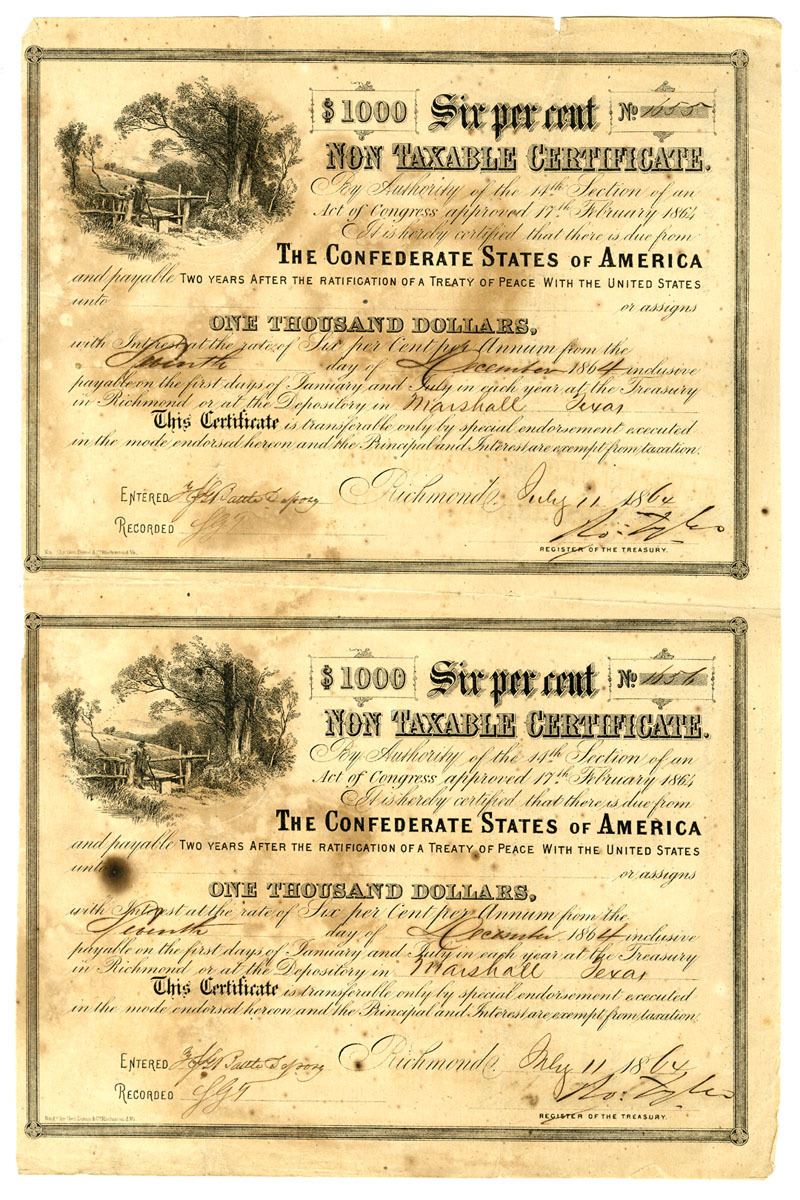 $1000 Six per cent No 1655
NON TAXABLE CERTIFICATE.
By Authority of the 14th Section of an
Act of Congress approved 17th February 1864
It is hereby certified that there is due from
THE CONFEDERATE STATES OF AMERICA
and payable TWO YEARS AFTER THE RATIFICATION OF A TREATY OF PEACE WITH THE UNITED STATES
unto or assigns
ONE THOUSAND DOLLARS,
with Interest at the rate of Six per Cent per Annum from the
Seventh day of December 1864 inclusive
payable on the first days of January and July in each year at the Treasury
in Richmond or at the Depository in Marshall Texas
This Certificate is transferable only by special endorsement executed
in the mode endorsed hereon and the Principal and Interest are exempt from taxation.
ENTERED Battle Richmond, July 11 1864
RECORDED Ro: Tyler
REGISTER OF THE TREASURY.
$1000 Six per cent No 1656
NON TAXABLE CERTIFICATE.
By Authority of the 14th Section of an
Act of Congress approved 17th February 1864
It is hereby certified that there is due from
THE CONFEDERATE STATES OF AMERICA
and payable TWO YEARS AFTER THE RATIFICATION OF A TREATY OF PEACE WITH THE UNITED STATES
unto or assigns
ONE THOUSAND DOLLARS,
with Interest at the rate of Six per Cent per Annum from the
Seventh day of December 1864 inclusive
payable on the first days of January and July in each year at the Treasury
in Richmond or at the Depository in Marshall Texas
This Certificate is transferable only by special endorsement executed
in the mode endorsed hereon and the Principal and Interest are exempt from taxation.
ENTERED Battle Richmond, July 11 1864
RECORDED Ro: Tyler
REGISTER OF THE TREASURY.